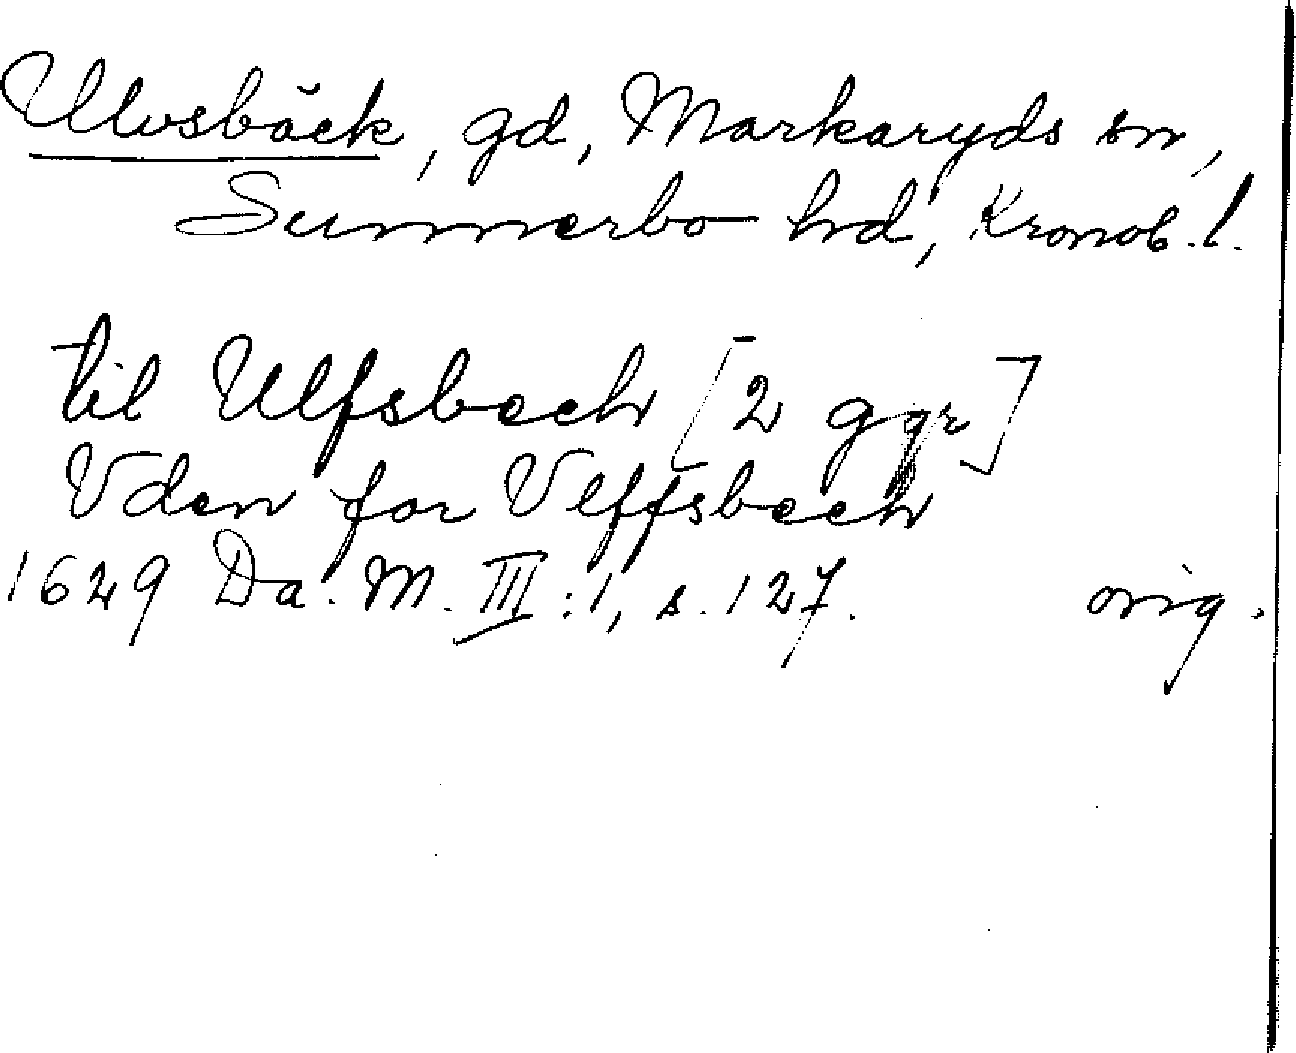 Ulvsbäck, gd, Markaryds sn,
Sunnerbo hd, Kronob. l.
til Ulfsbech [2 ggr]
Vden for Vlffsbech
1629 Da. M. III:1, s. 127. orig.